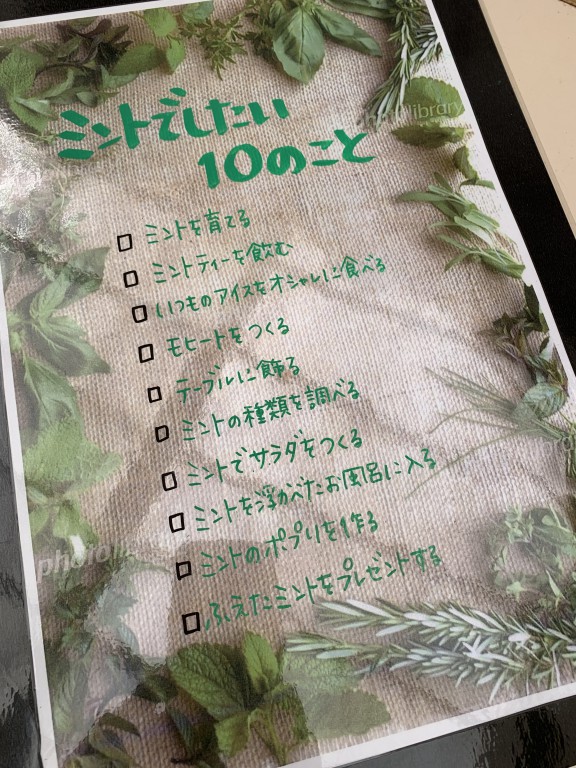 ミントでしたい
10のこと
□ ミントを育てる
□ ミントティーを飲む
□ いつものアイスをオシャレに食べる
□ モヒートをつくる
□ テーブルに飾る
□ ミントの種類を調べる
□ ミントでサラダをつくる
□ ミントを浮かべたお風呂に入る
□ ミントのポプリを作る
□ ふえたミントをプレゼントする
photolibrary